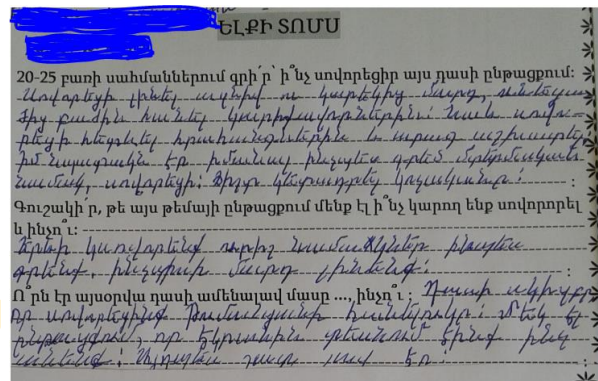 ԵԼՔԻ ՏՈՄՍ
20-25 բառի սահմաններում գրի՛ր՝ ի՞նչ սովորեցիր այս դասի ընթացքում:
Սովորեցի լինել ազնիվ ու կարեկից մարդ, ունեցա
ծից բաժին հանել կարիքավորներին: Նաև սովո-
րեցի հետևել հրահանգներին և արագ աշխատել:
իմ նպատակն էր իմանալ ինչպես գրել
նամակ, սովորեցի: Ճիշտ կետադրել:
Գուշակի՛ր, թե այս թեմայի ընթացքում մենք էլ ի՞նչ կարող ենք սովորորել
և ինչո՞ւ:
Երևի կսովորենք ուրիշ նամակներ ինչպես
գրենք, ինչպիսի մարդ լինենք:
Ո՞րն էր այսօրվա դասի ամենալավ մասը ..., ինչո՞ւ: Դասի սկիզբը
որ սովորեցինք Թումանյանի հանելուկը: Մեկ էլ
ընթացքում, որ էկրանին տեսնում էինք ինչ
անենք: Այդպես շատ լավ էր: